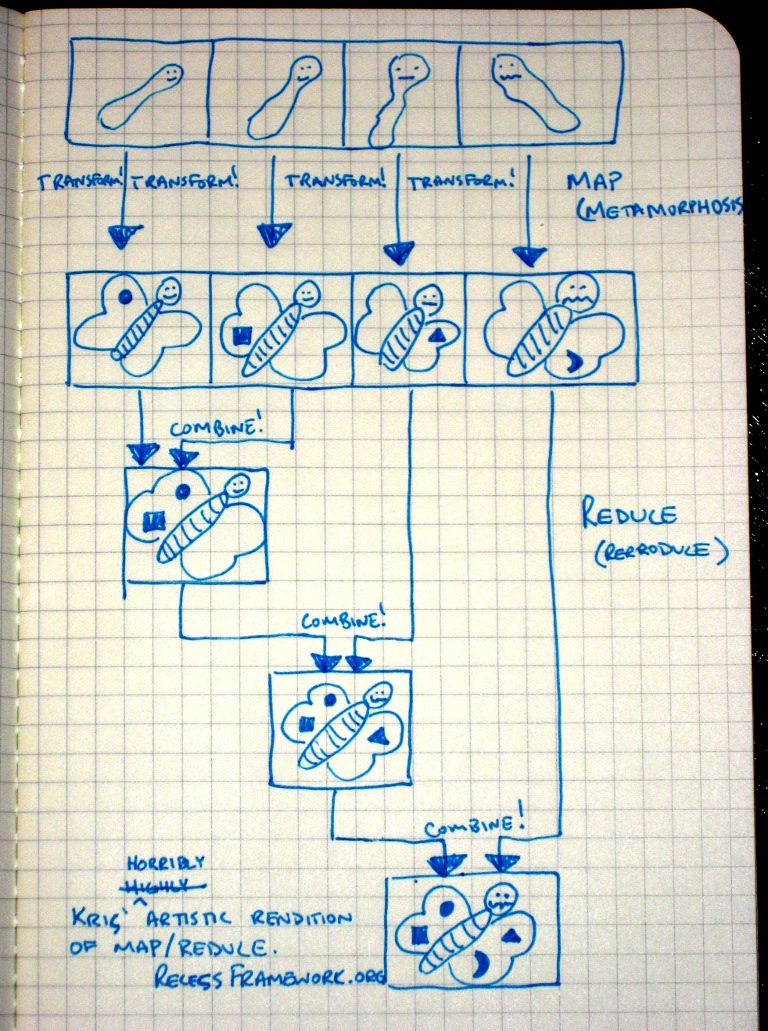 TRANSFORM! TRANSFORM! TRANSFORM! TRANSFORM! MAP
(METAMORPHOSIS
COMBINE!
REDUCE
(REPRODUCE)
COMBINE!
COMBINE!
HORRIBLY
HIGHLY
KRIS' ^ ARTISTIC RENDITION
OF MAP/REDUCE.
RECESS FRAMEWORK.ORG